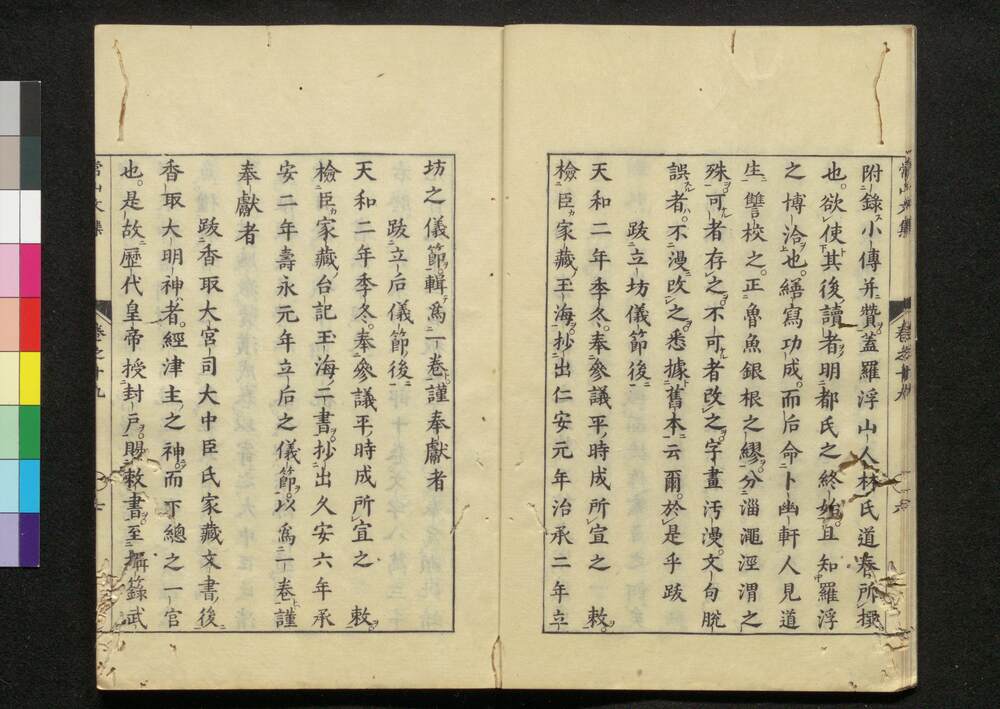 附録小傳并贊蓋羅浮山人林氏道春所撰
也欲使其後讀者明都氏之終始且知羅浮
之博洽也繕寫功成而后命卜幽軒人見道
生讐校之正魯魚銀根之繆分淄澠涇渭之
殊可者存之不可者改之字畫汚漫文句脱
誤者不漫改之悉據舊本云爾於是乎跋
跋立坊儀節後
天和二年季冬奉參議平時成所宣之 敕
檢臣家藏玉海抄出仁安元年治承二年立
坊之儀節輯爲一卷謹奉獻者
跋立后儀節後
天和二年季冬奉參議平時成所宣之 敕
檢臣家藏台記玉海二書抄出久安六年承
安二年壽永元年立后之儀節以爲一卷謹
奉獻者
跋香取大宮司大中臣氏家藏文書後
香取大明神者經津主之神而下總之一宮
也是故歷代皇帝授封戸賜敕書至攝籙武
常山文集 卷之十九